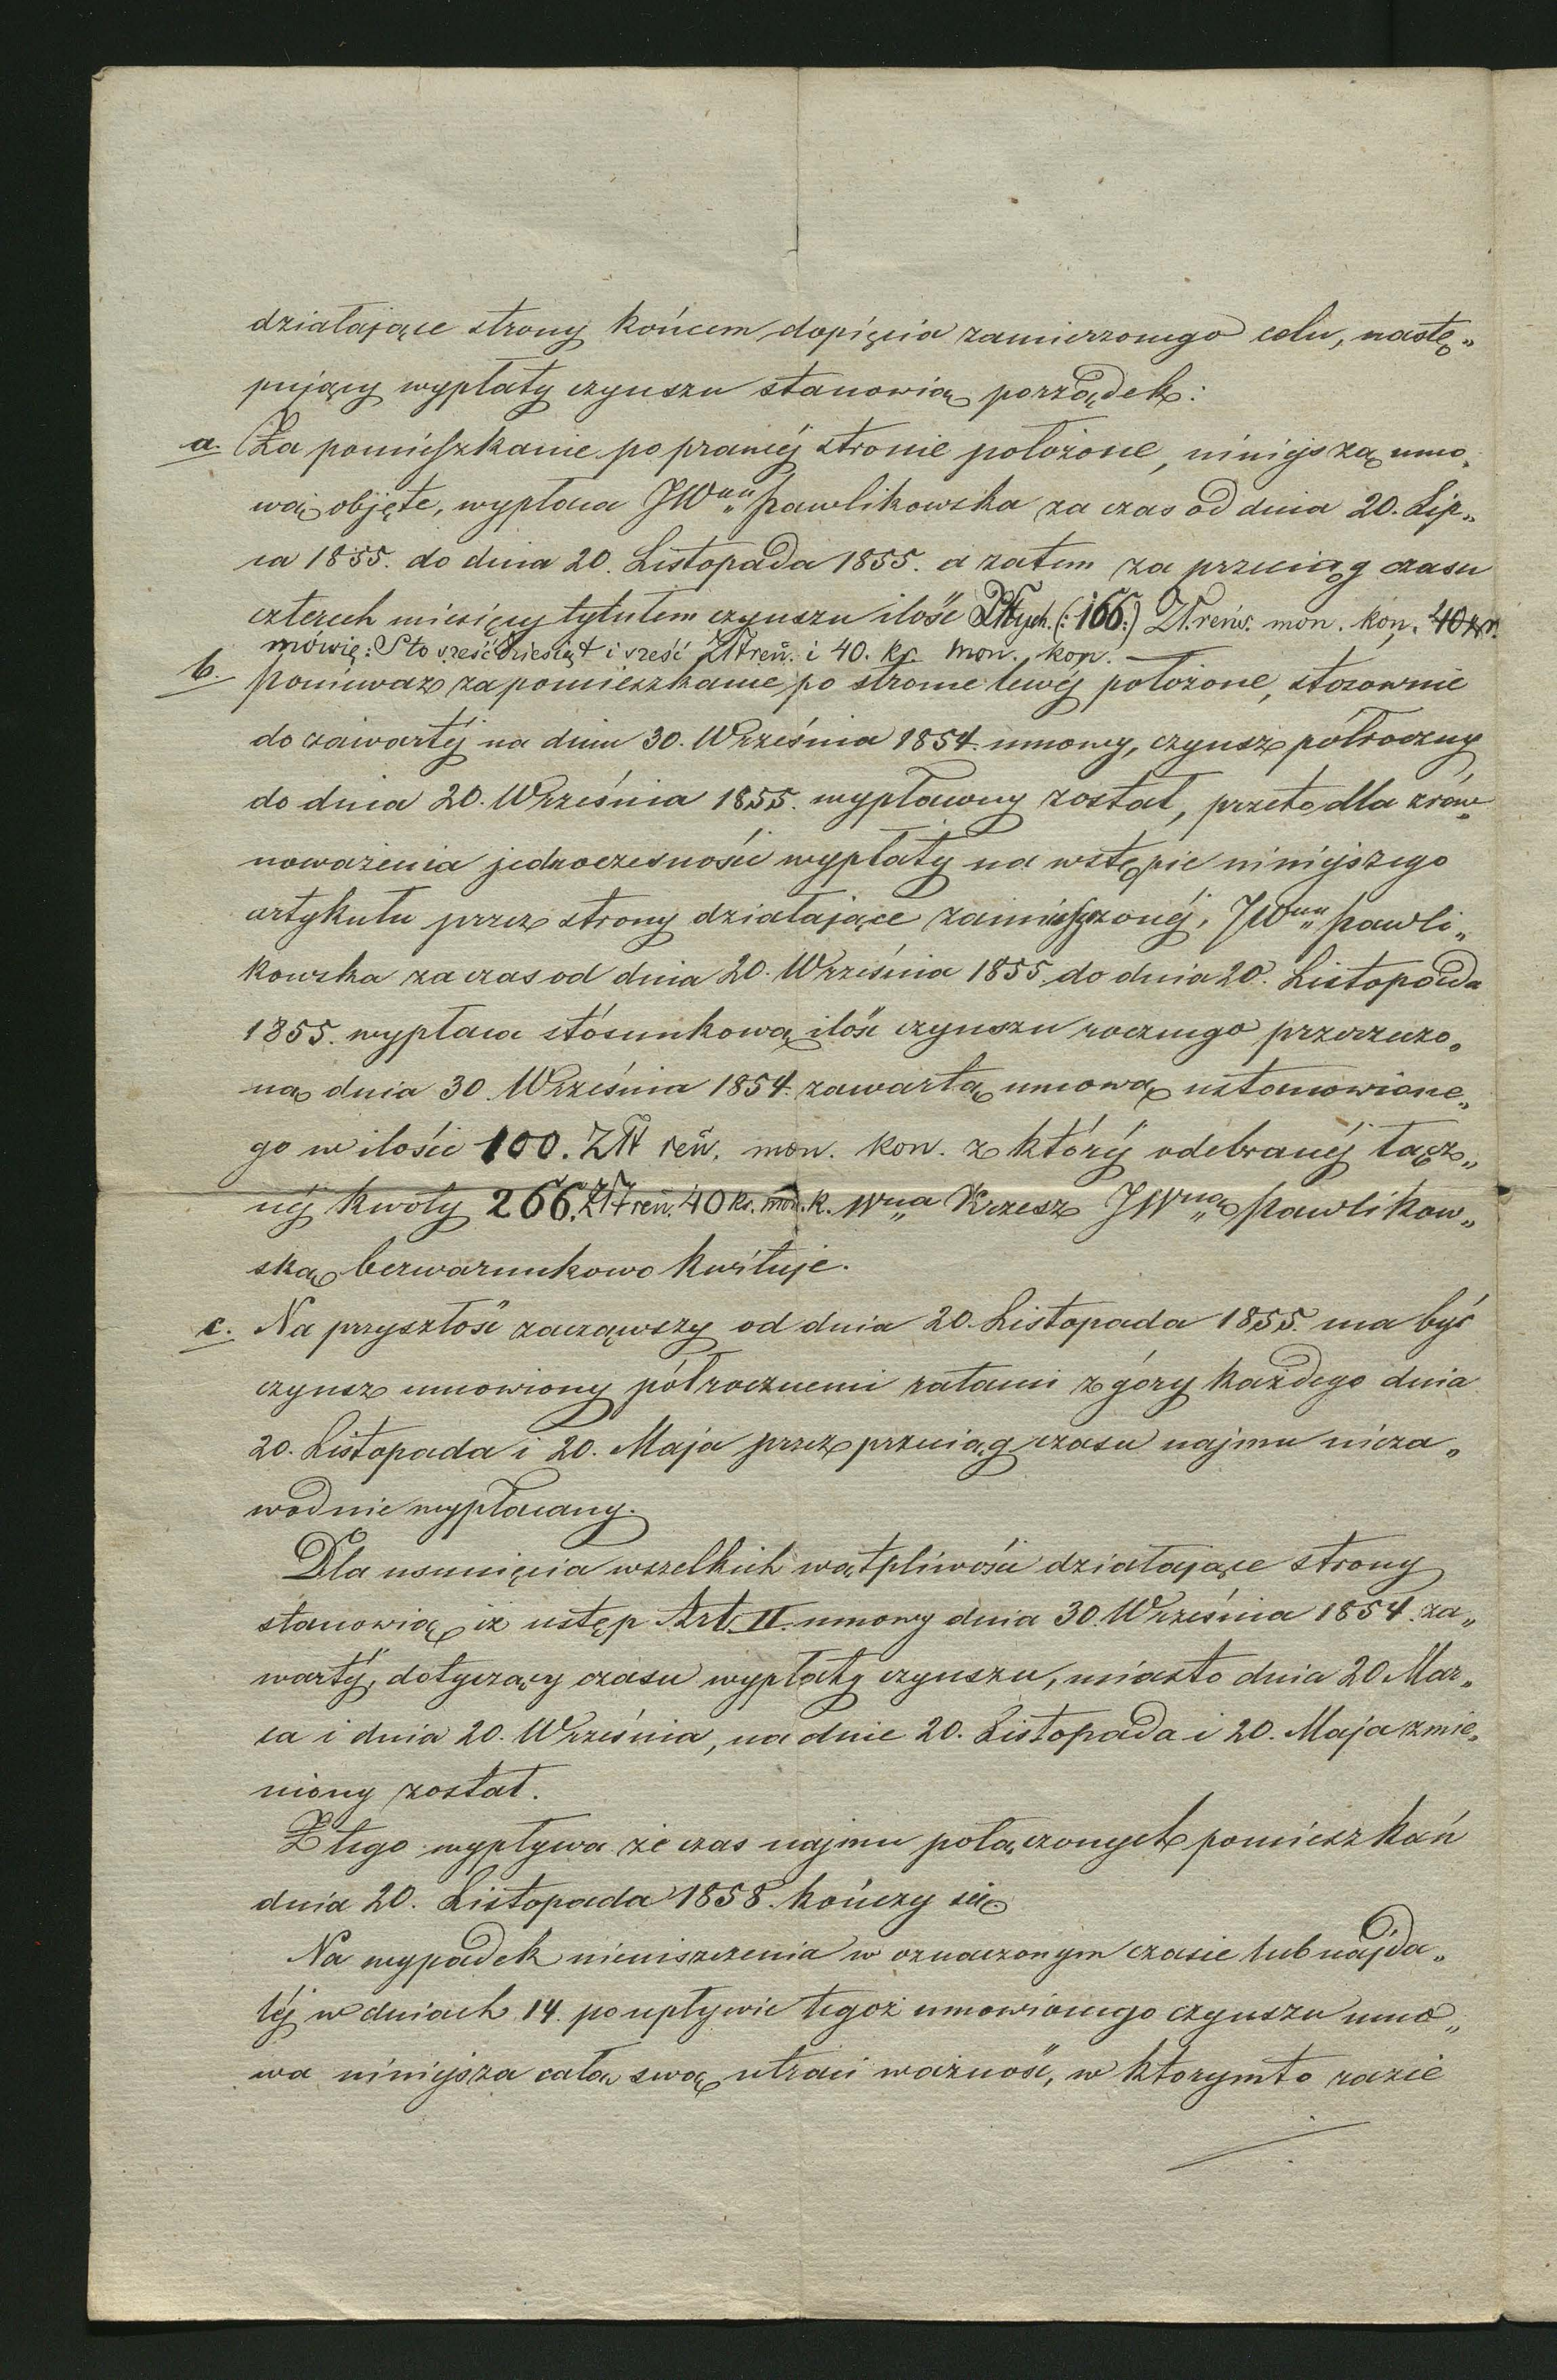 działające strony końcem dopięcia zamierzonego celu, nastę„
pujący wypłaty czynszu stanowią porządek:
a. Za pomieszkanie po prawéj stronie położone, niniejszą umo„
wą objęte, wypłaca JWna Pawlikowska za czas od dnia 20. Lip„
ca 1855. do dnia 20. Listopada 1855. a zatem za przeciąg czasu
czterech miesięcy tytułem czynszu ilość Złłtych. (:166:) Zł. reńs. mon. kon. 40 kr.
mówię: Sto sześćdziesiąt i sześć Złł reń. i 40. kr. mon. kon.
b. Ponieważ za pomieszkanie po stronie lewéj położone, stosownie
do zawartéj na dniu 30. Września 1854. umowy, czynsz półroczny
do dnia 20. Września 1855. wypłacony został, przeto dla zrów„
noważenia jednoczesności wypłaty na wstępie niniejszego
artykułu przez strony działające zamierzonéj, JWna Pawli„
kowska za czas od dnia 20. Września 1855 do dnia 20. Listopada
1855. wypłaca stósunkową ilość czynszu rocznego przerzeczo„
ną dnia 30 Września 1854. zawartą umową ustanowione„
go w ilości 100. Złł reń. mon. kon. z któréj odebranéj łącz„
néj kwoty 266. Złł reń. 40 kr. mon. k. Wna Krzesz JWną Pawlikow„
ską bezwarunkowo kwituje.
c. Na przyszłość zacząwszy od dnia 20. Listopada 1855. ma być
czynsz umowiony półrocznemi ratami z góry każdego dnia
20. Listopada i 20. Maja przez przeciąg czasu najmu nieza„
wodnie wypłacany.
Dla usunięcia wszelkich wątpliwości działające strony
stanowią iż ustęp Art. II. umowy dnia 30. Września 1854. za„
wartéj, dotyczący czasu wypłaty czynszu, miasto dnia 20 Mar„
ca i dnia 20. Września, na dnie 20. Listopada i 20. Maja zmie„
niony został.
Z tego wypływa że czas najmu połączonych pomieszkań
dnia 20. Listopada 1858. kończy się.
Na wypadek nieuiszczenia w oznaczonym czasie lub najda„
léj w dniach 14. po upływie tegoż umowionego czynszu umo„
wa niniejsza całą swą utraci ważność, w ktorymto razie